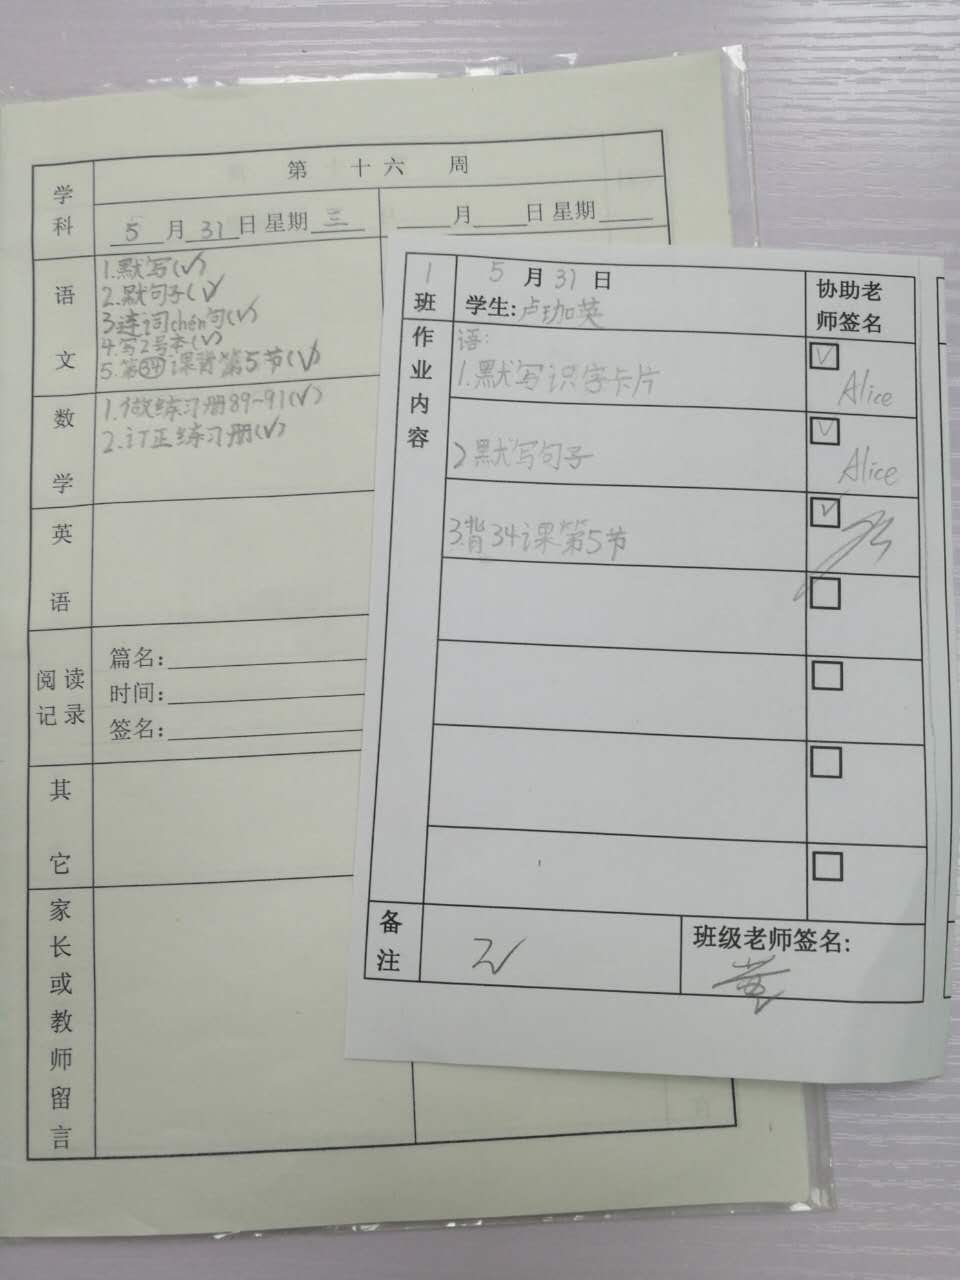 学科
第 十 六 周
5月31日 星期三
___月___日 星期___
语文
1.默写(√)
2.默句子(√)
3连词chén句(√)
4.写2号本(√)
5.第34课背第5节(√)
数学
1.做练习册89~91(√)
2.订正练习册(√)
英语
阅读记录
篇名:
时间:
签名:
其它
家长或教师留言
1班
5月31日
学生:卢珈英
协助老师签名
作业内容
语:
1.默写识字卡片
√
Alice
2默写句子
√
Alice
3.背34课第5节
√
备注
班级老师签名: